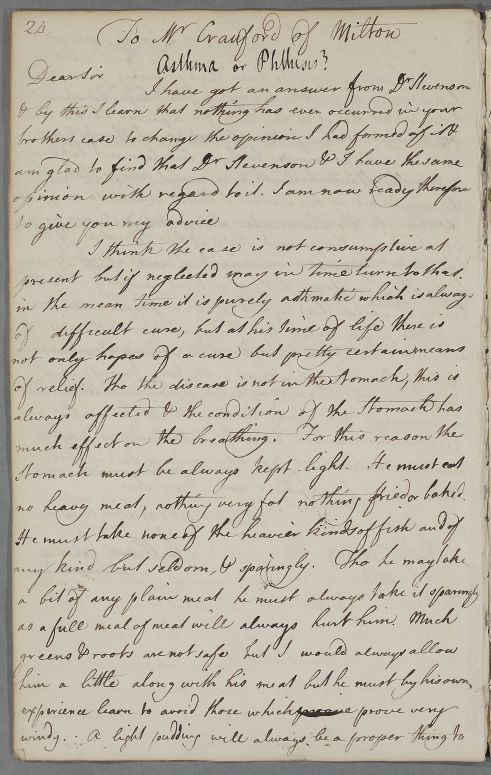 24.
To Mr Crauford of Milton
Asthma or Phthisis?
Dear Sir
I have got an answer from Dr Stevenson
& by this I learn that nothing has ever occurred in your
brothers case to change the opinion I had formed of it &
am glad to find that Dr Stevenson & I have the same
opinion with regard to it. I am now ready therefore
to give you my advice.
I think the case is not consumptive at
present but if neglected may in time turn to that.
in the mean time it is purely asthmatic which is always
of difficult cure, but at his time of life there is
not only hopes of a cure but pretty certain means
of relief. Tho the disease is not in the stomach, this is
always affected & the condition of the stomach has
much effect on the breathing. For this reason the
stomach must be always kept light. He must eat
no heavy meat, nothing very fat nothing fried or baked.
He must take none of the heavier kinds of fish and of
any kind but seldom, & sparingly. Tho he may take
a bit of any plain meat he must always take it sparingly
as a full meal of meat will always hurt him. Much
greens & roots are not safe but I would always allow
him a little along with his meat but he must by his own
experience learn to avoid those which prove very
windy. A light pudding will always be a proper thing to